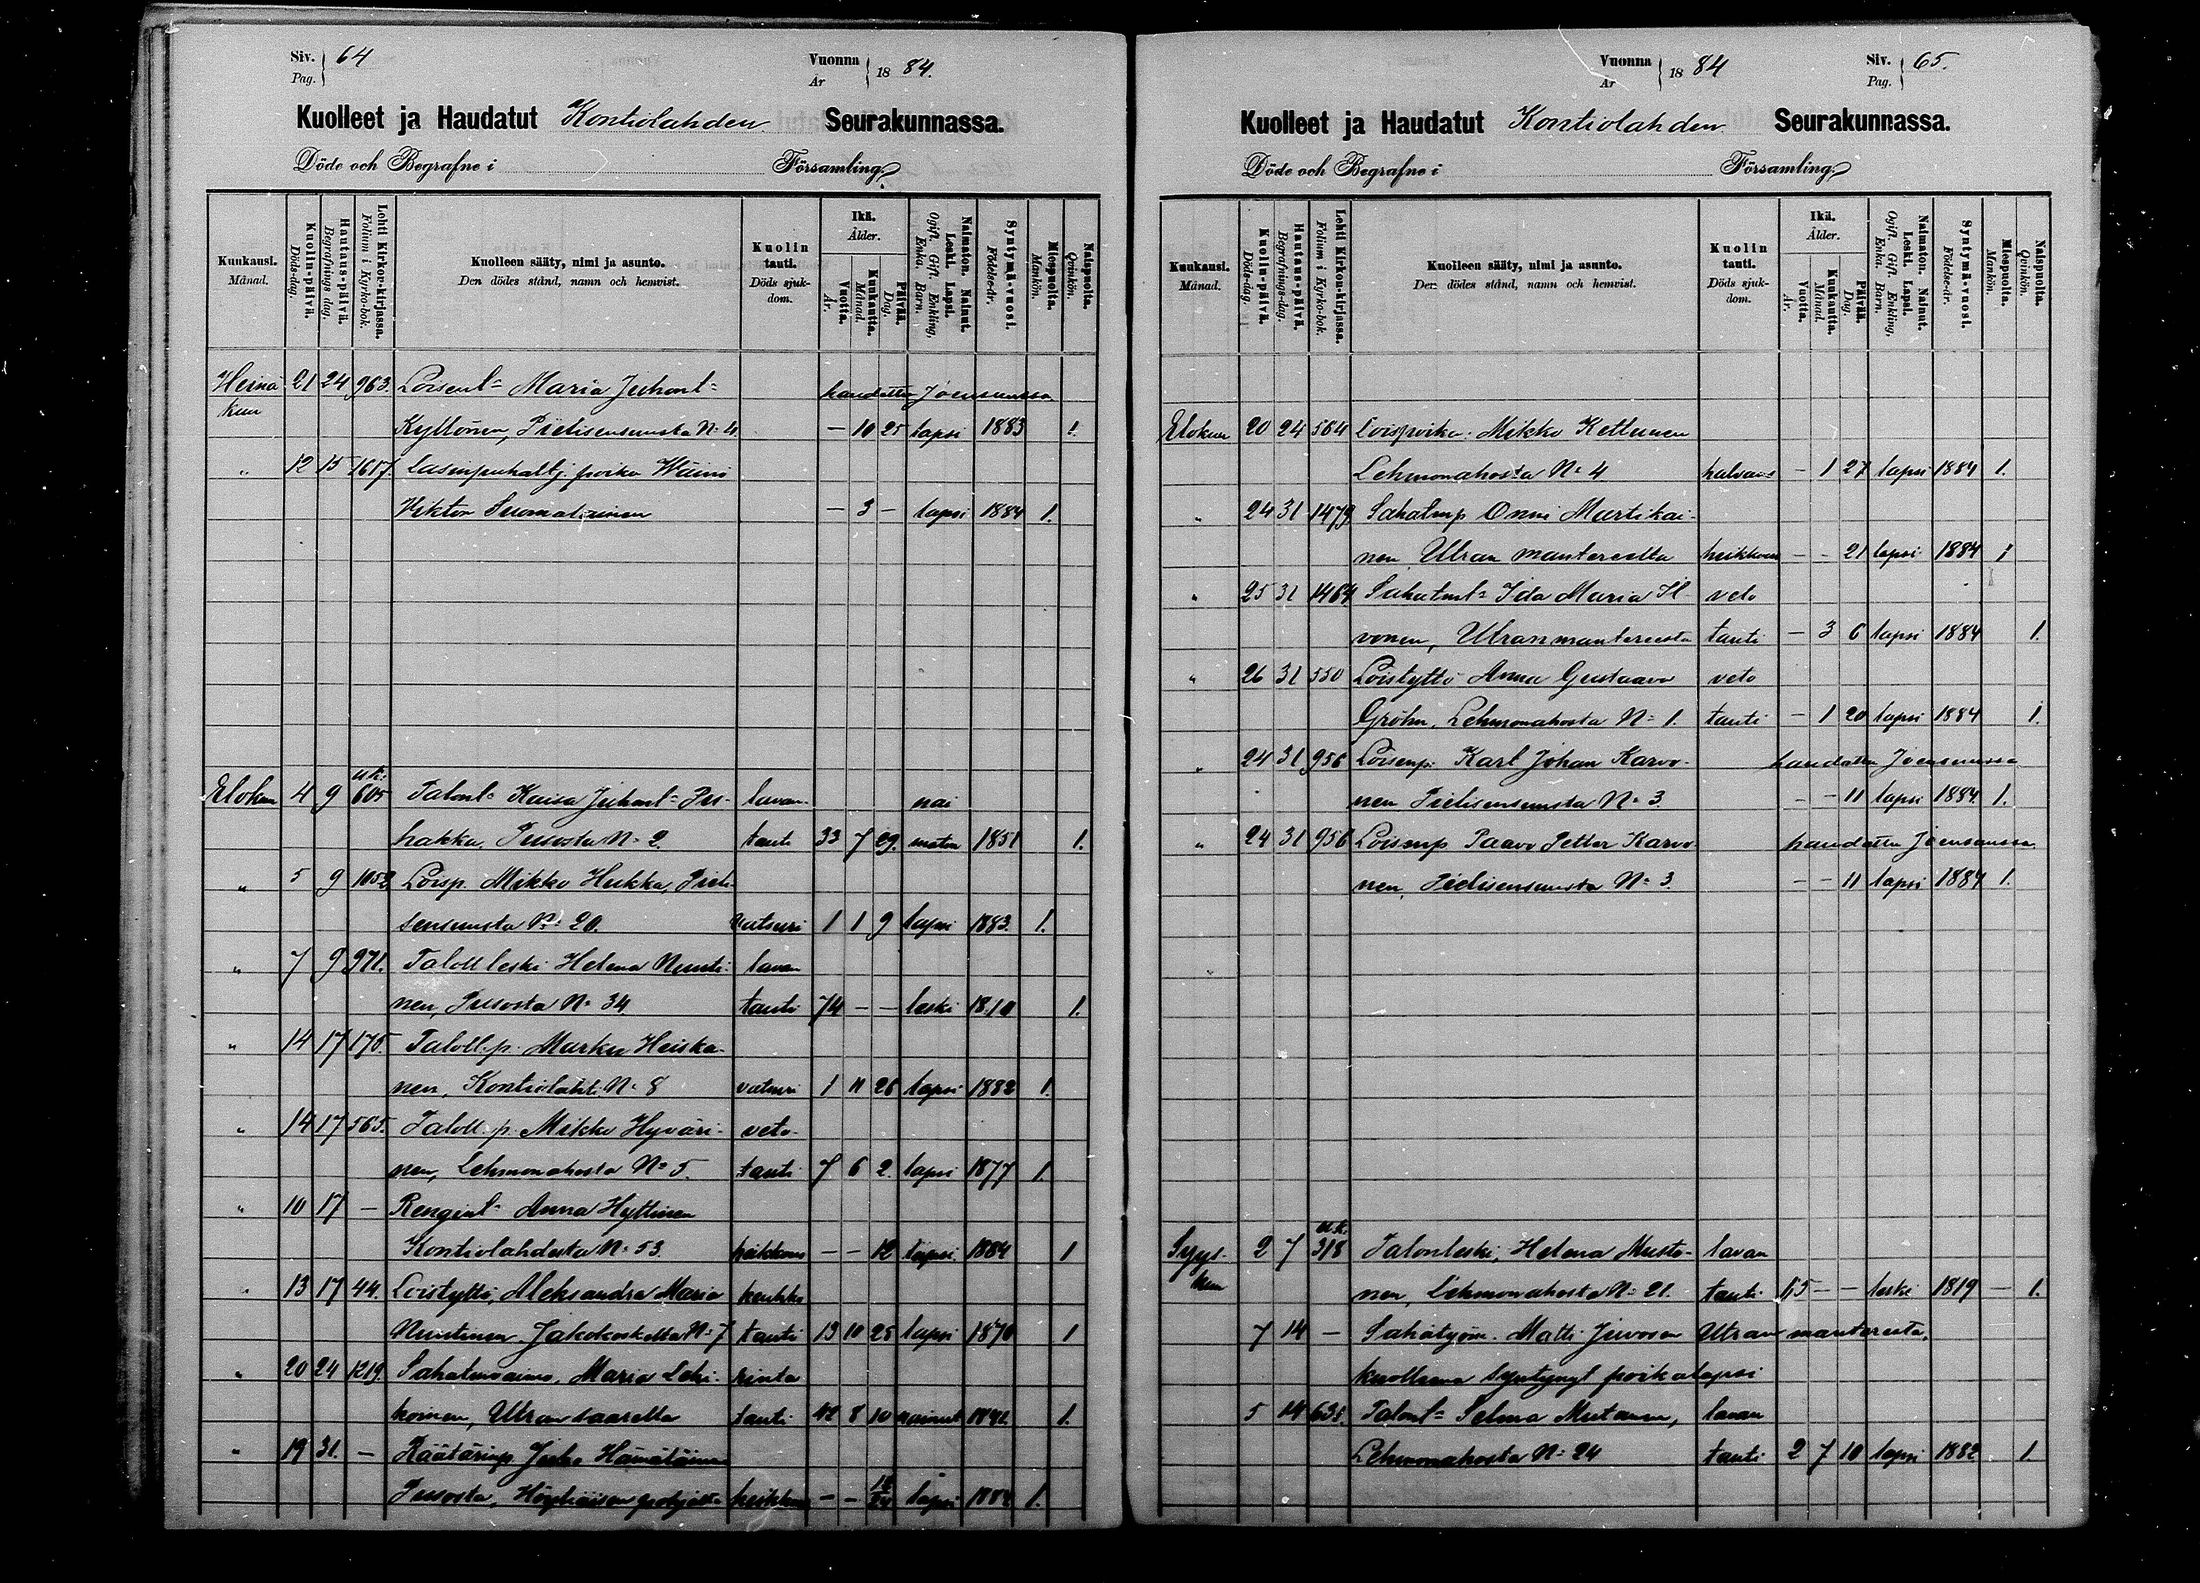 Siv. 64 Vuonna 1884.
Pag. År
Kuolleet ja Haudatut Kontiolahden Seurakunnassa.
Döde och Begrafne i Församling.
Kuukausi. Månad. Kuolin-päivä. Döds-dag. Hautaus-päivä. Begrafnings dag. Lehti Kirkon-kirjassa. Folium i Kyrko-bok. Kuolleen sääty, nimi ja asunto. Den dödes stånd, namn och hemvist. Kuolin tauti. Döds sjukdom. Ikä. Ålder. Vuotta. År. Kuukautta. Månad. Päivää. Dag. Naimaton. Nainut. Leski. Lapsi. Ogift. Gift. Enkling, Enka. Barn. Syntymä-vuosi. Födelse-år. Miespuolta. Mankön. Naispuolta. Qvinkön.
Heinä 21 24 963. Loisent= Maria Juhont= haudattu Joensuussa
kuu Kyllönen, Pielisensuusta N= 4. — 10 25 lapsi 1883 1.
" 12 15 1617. lasinpuhaltj. poika Wäinö
Viktor Suomalainen — 3 — lapsi 1884 1.
uk.
Elokuu 4 9 605 Talont= Kaisa Juhont= Pus- lavan- nai
hakka, Pusosta N= 2. tauti 33 7 29. maton 1851 1.
" 5 9 1052 Loisp. Mikko Hukka, Pieli-
sensuusta N= 20. vatsuri 1 1 9 lapsi 1883. 1.
" 7 9 971. Taloll leski Helena Nuuti- lavan
nen, Pusosta N= 34 tauti 74 — — leski 1810 1.
" 14 17 175. Taloll. p. Marku Heiska-
nen, Kontiolahti N= 8 vatsuri 1 11 26 lapsi 1882 1.
" 14 17 565. Taloll. p. Mikko Hyväri- veto-
nen, Lehmonahosta N= 5. tauti 7 6 2. lapsi 1877 1.
" 10 17 — Rengint= Anna Hyttinen
Kontiolahdesta N= 53. heikkous — — 12 lapsi. 1884 1
" 13 17 44. Loistyttö, Aleksandra Maria keuhko
Nuutinen, Jakokoskelta N= 7 tauti 13 10 25 lapsi 1870 1
" 20 24 1219. Sahatmvaimo, Maria Lehi- rinta
koinen, Utran saarella tauti 42 8 10 nainut 1841. 1.
" 19 31. — Räätärinp. Juho Hämäläinen
Pusosta, Höytiäisen pohjalta heikkous — — 12/24 lapsi 1884 1.
Vuonna 1884 Siv. 65.
År Pag.
Kuolleet ja Haudatut Kontiolahden Seurakunnassa.
Döde och Begrafne i Församling.
Kuukausi. Månad. Kuolin-päivä. Döds-dag. Hautaus-päivä. Begrafnings-dag. Lehti Kirkon-kirjassa. Folium i Kyrko-bok. Kuolleen sääty, nimi ja asunto. Den dödes stånd, namn och hemvist. Kuolin tauti. Döds sjukdom. Ikä. Ålder. Vuotta. År. Kuukautta. Månad. Päivää. Dag. Naimaton. Nainut. Leski. Lapsi. Ogift. Gift. Enkling, Enka. Barn. Syntymä-vuosi. Födelse-år. Miespuolta. Mankön. Naispuolta. Qvinkön.
Elokuu 20 24 564 Loispoika: Mikko Kettunen
Lehmonahosta N= 4 halvaus — 1 27 lapsi 1884 1.
" 24 31 1479 Sahatmp Onni Martikai-
nen, Utran mantereelta heikkous — — 21 lapsi 1884 1
" 25 31 1464 Sahatmt= Ida Maria Il veto
vonen, Utran mantereesta tauti — 3 6 lapsi 1884 1.
" 26 31 550 Loistyttö Anna Gustaava veto
Gröhn, Lehmonahosta N= 1. tauti — 1 20 lapsi 1884 1.
" 24 31 956 Loisenp. Karl Johan Karvo- haudattu Joensuussa
nen Pielisensuusta N= 3. — — 11 lapsi 1884. 1.
" 24 31 956 Loisenp Paavo Petter Karvo- haudattu Joensuussa
nen, Pielisensuusta N= 3. — — 11 lapsi 1884 1.
uk.
Syys- 2 7 318 Talonleski, Helena Musto- lavan
kuu nen, Lehmonahosta N= 21. tauti 65 — — leski 1819 — 1.
7 14 — Sahatyöm. Matti Juvosen Utran mantereesta,
kuolleena syntynyt poikalapsi
5 14 635. Talont= Selma Mutanen, lavan
Lehmonahosta N= 24 tauti 2 7 10 lapsi 1882 1.